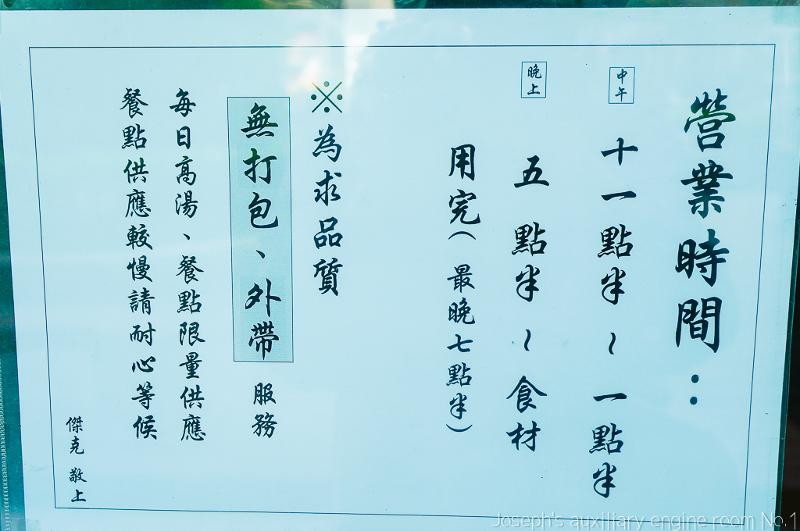 營業時間：
中午 十一點半~一點半
晚上 五點半~食材
用完(最晚七點半)
※為求品質
無打包、外帶服務
每日高湯、餐點限量供應
餐點供應較慢請耐心等候
傑克 敬上
Joseph's auxiliary engine room No.1